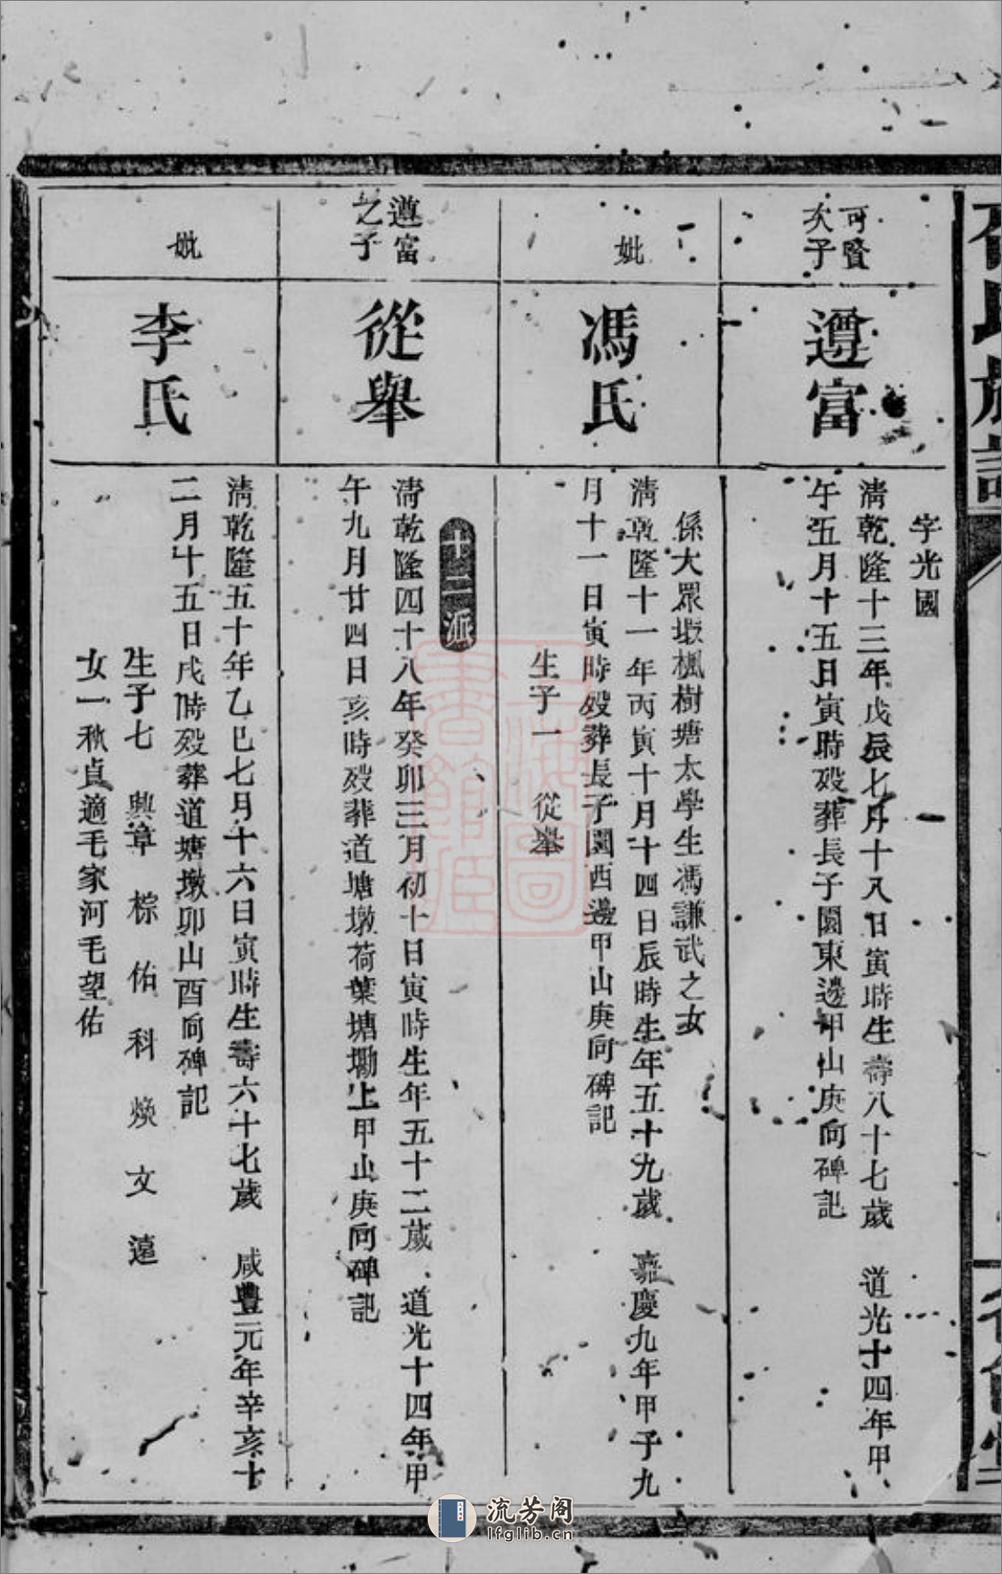 可賢
次子
遵富
字光國
清乾隆十三年戊辰七月十八日寅時生壽八十七歲　道光十四年甲
午五月十五日寅時殁葬長子園東邊甲山庚向碑記
妣
馮氏
係大眾墩楓樹塘太學生馮謙武之女
清乾隆十一年丙寅十月十四日辰時生年五十九歲　嘉慶九年甲子九
月十一日寅時殁葬長子園西邊甲山庚向碑記
生子一　從舉
遵富
之子
從舉
十二派
清乾隆四十八年癸卯三月初十日寅時生年五十二歲　道光十四年甲
午九月廿四日亥時殁葬道塘墩荷葉塘墈上甲山庚向碑記
妣
李氏
清乾隆五十年乙巳七月十六日寅時生壽六十七歲　咸豐元年辛亥十
二月十五日戌時殁葬道塘墩卯山酉向碑記
生子七　興 章 棕 佑 科 煥 文 遠
女一秋貞適毛家河毛望佑
氏族譜
流芳阁
lfglib.cn